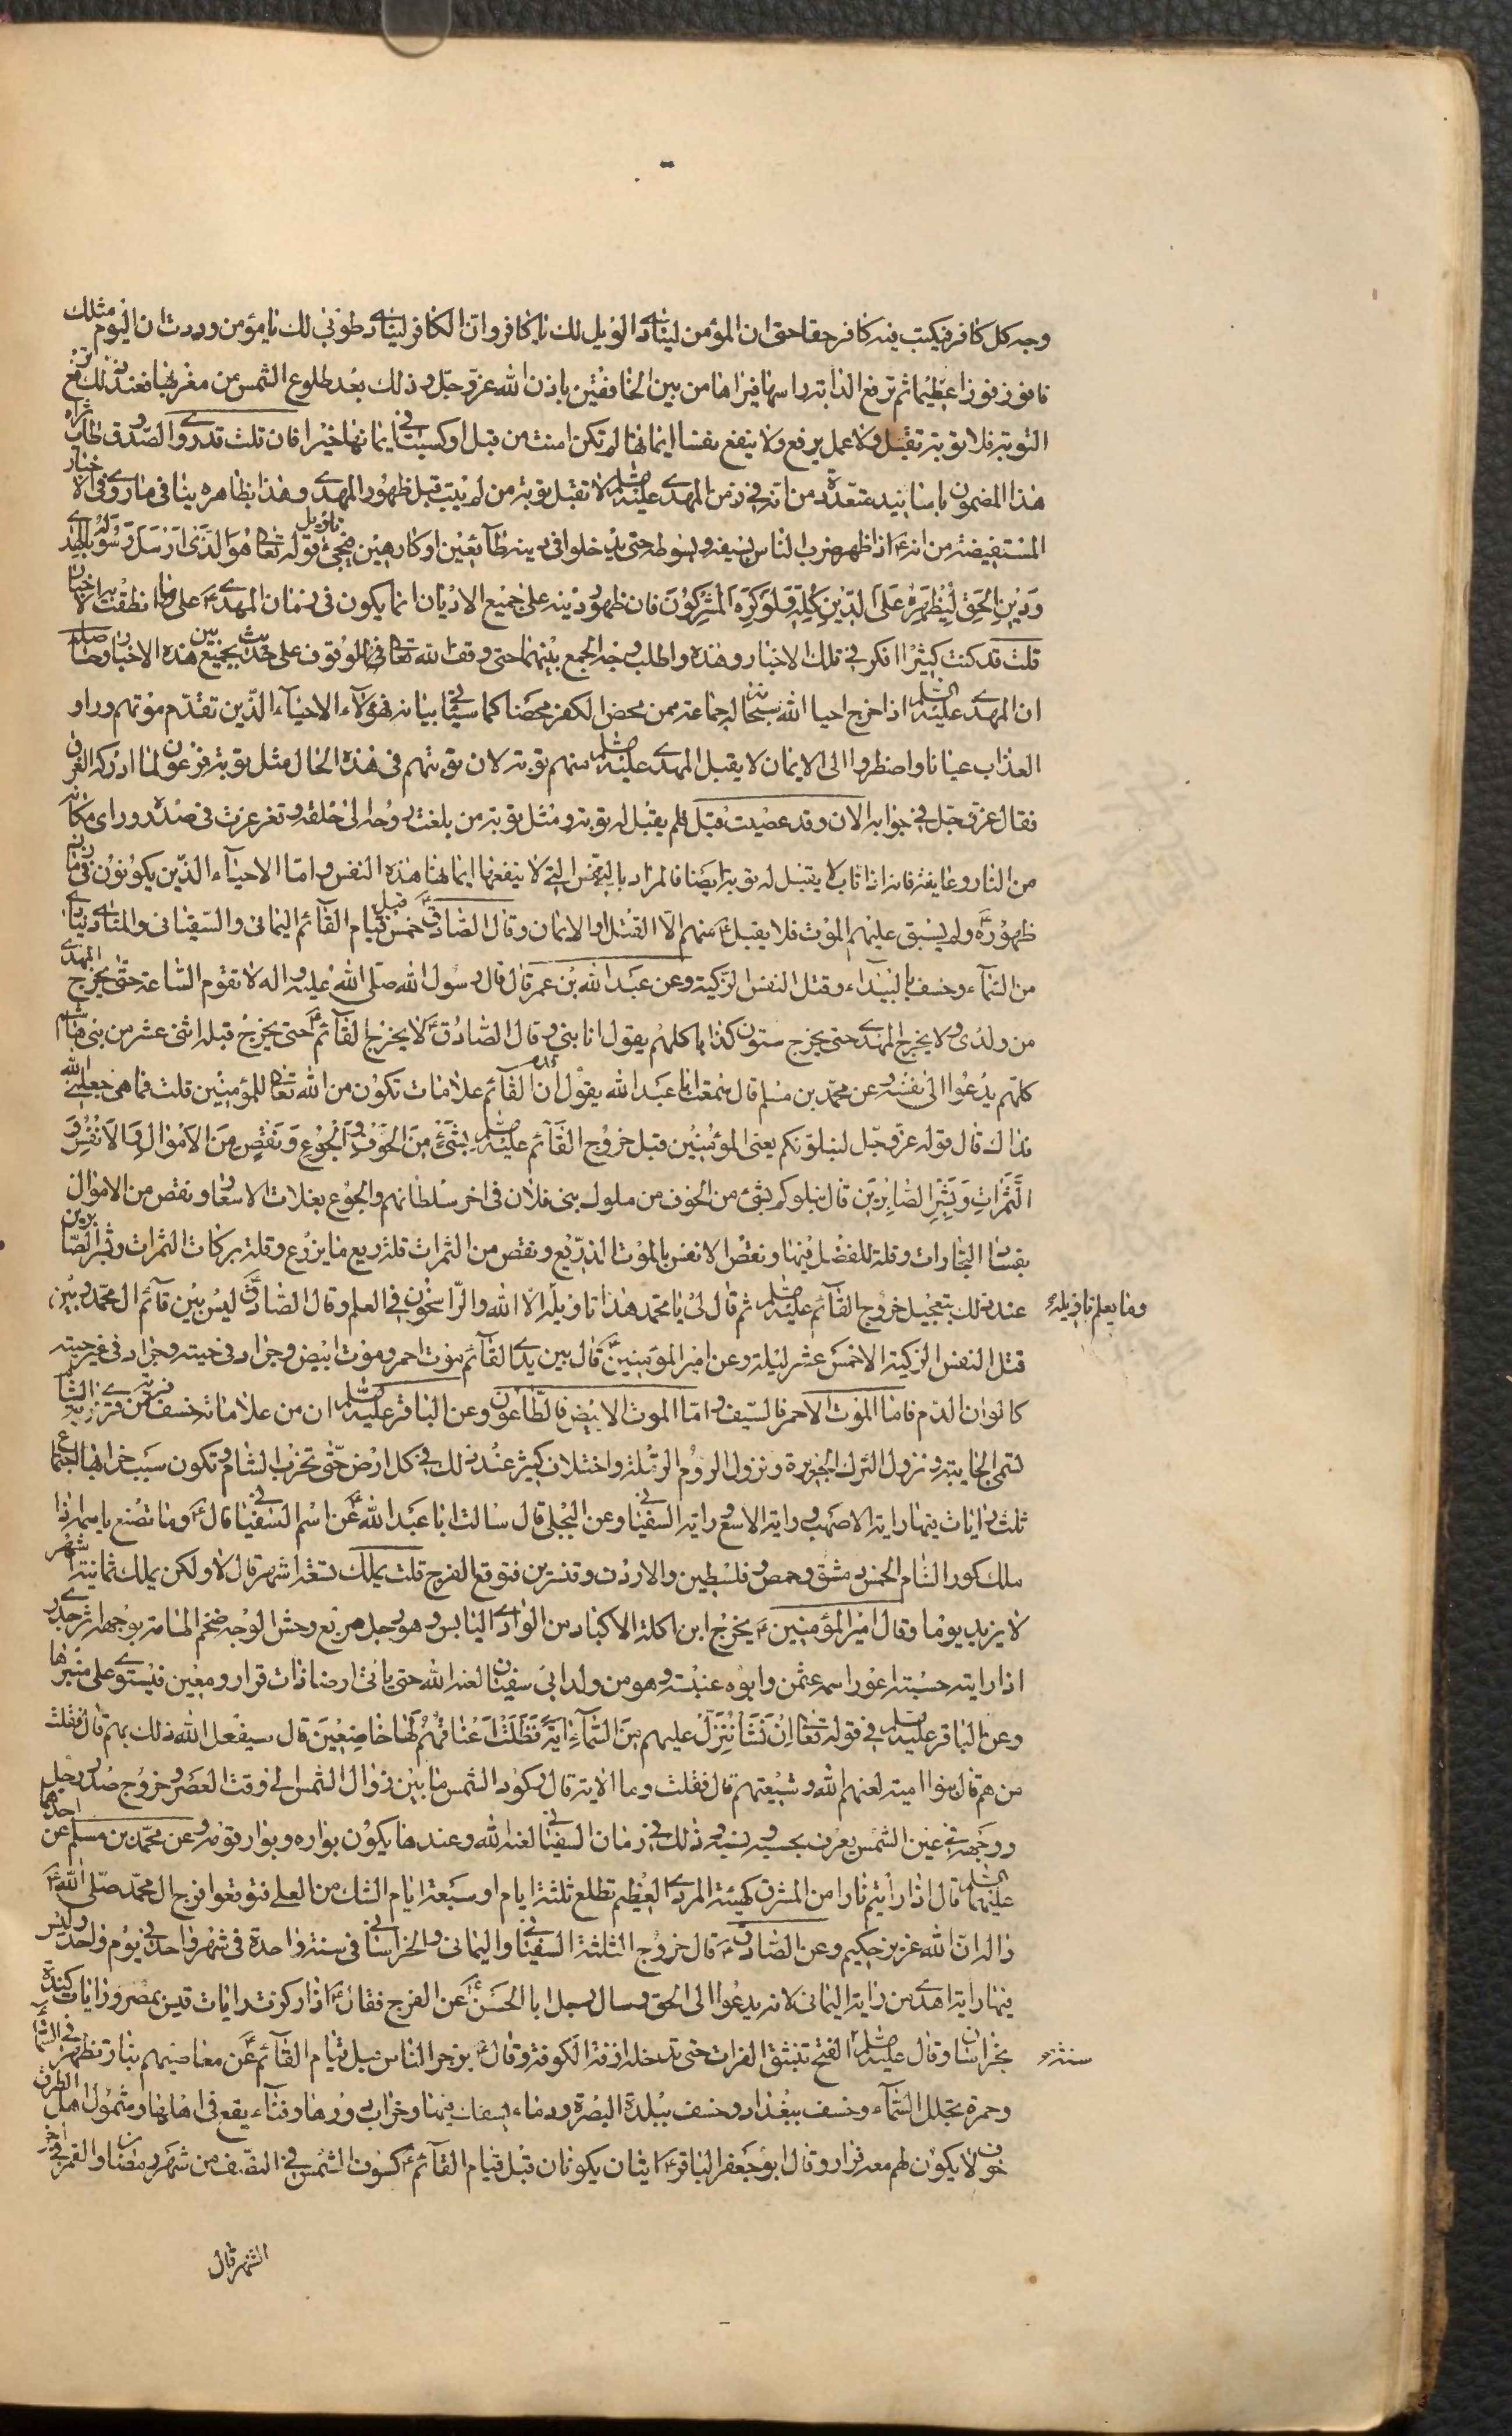 وجه كل كافر فيكتب فيه كافر حقا حتى ان المؤمن لينادى الويل لك يا كافر وان الكافر لينادى طوبى لك يا مؤمن وددت ان اليوم مثلك
فافوز فوزا عظيما ثم ترفع الدابة راسها فيراها من بين الخافقين باذن الله عز وجل وذلك بعد طلوع الشمس من مغربها فعند ذلك ترفع
التوبة فلا توبة تقبل ولا عمل يرفع ولا ينفع نفسا ايمانها لم تكن امنت من قبل او كسبت في ايمانها خيرا فان قلت قد روى الصدوق طاب ثراه
هذا المضمون باسانيد متعددة من انه في زمن المهدى عليه السلم لا تقبل توبة من لم يتب قبل ظهور المهدى وهذا بظاهره ينافى ما روى في الاخبار
المستفيضة من انه ع اذا ظهر ضرب الناس بسيفه وسوطه حتى يدخلوا في دينه طائعين او كارهين فيجئ تاويل قوله تعالى هو الذى ارسل رسوله بالهدى
ودين الحق ليظهره على الدين كله ولو كره المشركون فان ظهور دينه على جميع الاديان انما يكون في زمان المهدى ع على ما نطقت به الاخبار
قلت قد كنت كثيرا افكر في تلك الاخبار وهذه واطلب وجه الجمع بينهما حتى وفق الله تعالى الوقوف على حديث يجمع بين هذه الاخبار وحاصله
ان المهدى عليه السلم اذا خرج احيا الله سبحانه له جماعة ممن محض الكفر محضا كما سياتى بيانه فهؤلاء الاحياء الذين تقدم موتهم وراوا
العذاب عيانا واضطروا الى الايمان لا يقبل المهدى عليه السلم منهم توبة لان توبتهم في هذه الحال مثل توبة فرعون لما ادركه الغرق
فقال عز وجل في جوابه الان وقد عصيت قبل فلم يقبل له توبة ومثل توبة من بلغت روحه الى حلقه وتغرغرت في صدره وراى مكانه
من النار وعاينه فانه اذا تاب لا يقبل له توبة ايضا فالمراد بالنفس التى لا ينفعها ايمانها هذه النفس واما الاحياء الذين يكونون في زمان
ظهوره ع ولم يسبق عليهم الموت فلا يقبل ع منهم الا القتل او الايمان وقال الصادق ع خمس قبل قيام القائم اليمانى والسفيانى والمنادى ينادى
من السماء وخسف بالبيداء وقتل النفس الزكية وعن عبد الله بن عمر قال قال رسول الله صلى الله عليه واله لا تقوم الساعة حتى يخرج المهدى
من ولدى ولا يخرج المهدى حتى يخرج ستون كذابا كلهم يقول انا نبى وقال الصادق ع لا يخرج القائم ع حتى يخرج قبله اثنى عشر من بنى هاشم
كلهم يدعوا الى نفسه وعن محمد بن مسلم قال سمعت ابا عبد الله يقول ان القائم علامات تكون من الله تعالى للمؤمنين قلت فما هى جعلنى الله
فداك قال قوله عز وجل لنبلونكم يعنى المؤمنين قبل خروج القائم عليه السلم بشئ من الخوف والجوع ونقص من الاموال والانفس و
الثمرات وبشر الصابرين قال نبلوكم بشئ من الخوف من ملوك بنى فلان في اخر سلطانهم والجوع بغلاء الاسعار ونقص من الاموال
بفساد التجارات وقلة الفضل فيها ونقص الانفس بالموت الذريع ونقص من الثمرات قلة ريع ما يزرع وقلة بركات الثمرات وبشر الصابرين
عند ذلك بتعجيل خروج القائم عليه السلم ثم قال لى يا محمد هذا تاويله الا الله والراسخون في العلم وقال الصادق ع ليس بين قائم ال محمد وبين
وما يعلم تاويله
قتل النفس الزكية الا خمس عشر ليلة وعن امير المؤمنين ع قال بين يدى القائم موت احمر وموت ابيض وجراد في حينه وجراد في غير حينه
كالوان الدم فاما الموت الاحمر فالسيف واما الموت الابيض فالطاعون وعن الباقر عليه السلم ان من علاماته خسف قرية من قرى الشام
تسمى الجابية ونزول الترك الجزيرة ونزول الروم الرملة واختلاف كثير عند ذلك في كل ارض حتى تخرب الشام وتكون سبب خرابها اجتماع
ثلث رايات فيها راية الاصهب وراية الابقع وراية السفيانى وعن البجلى قال سالت ابا عبد الله ع عن اسم السفيانى قال ع وما تصنع باسمه اذا
ملك كور الشام الخمس دمشق وحمص وفلسطين والاردن وقنسرين فتوقع الفرج قلت يملك تسعة اشهر قال لا ولكن يملك ثمانية اشهر
لا يزيد يوما وقال امير المؤمنين ع يخرج ابن اكلة الاكباد من الوادى اليابس وهو رجل مربع وحش الوجه ضخم الهامة بوجهه اثر جدرى
اذا رايته حسبته اعور اسمه عثمن وابوه عنبسة وهو من ولد ابى سفيان لعنه الله حتى ياتى ارضا ذات قرار ومعين فيستوى على منبرها
وعن الباقر عليه السلم في قوله تعالى ان نشأ ننزل عليهم من السماء اية فظلت اعناقهم لها خاضعين قال سيفعل الله ذلك بهم قال فقلت
من هم قال بنوا امية لعنهم الله وشيعتهم قال فقلت وما الاية قال ركود الشمس ما بين زوال الشمس الى وقت العصر وخروج صدر رجل
ووجهه في عين الشمس يعرف بحسبه ونسبه وذلك في زمان السفيانى لعنه الله وعندها يكون بواره وبوار قومه وعن محمد بن مسلم عن احدهما
عليهما السلم قال اذا رايتم نارا من المشرق كهيئة المردى العظيم تطلع ثلثة ايام او سبعة ايام الشك من العلى فتوقعوا فرج ال محمد صلى الله ع
واله ان الله عزيز حكيم وعن الصادق ع قال خروج الثلثة السفيانى واليمانى والخراسانى في سنة واحدة في شهر واحد في يوم واحد وليس
فيها راية اهدى من راية اليمانى لانه يدعوا الى الحق وسال رجل ابا الحسن ع عن الفرج فقال ع اذا ركزت رايات قيس بمصر ورايات كندة
بخراسان وقال عليه السلم الفتح تنبثق الفرات حتى تدخل ازقة الكوفة وقال ع يزجر الناس قبل قيام القائم ع عن معاصيهم بنار تظهر في السماء
سنة
وحمرة تجلل السماء وخسف ببغداد وخسف ببلدة البصرة ودماء يسفك فيها وخراب دورها وفناء يقع في اهلها وشمول اهل العراق
خوف لا يكون لهم معه قرار وقال ابو جعفر الباقر ع ايتان يكونان قبل قيام القائم ع كسوف الشمس في النصف من شهر رمضان والقمر في اخر
الشهر قال